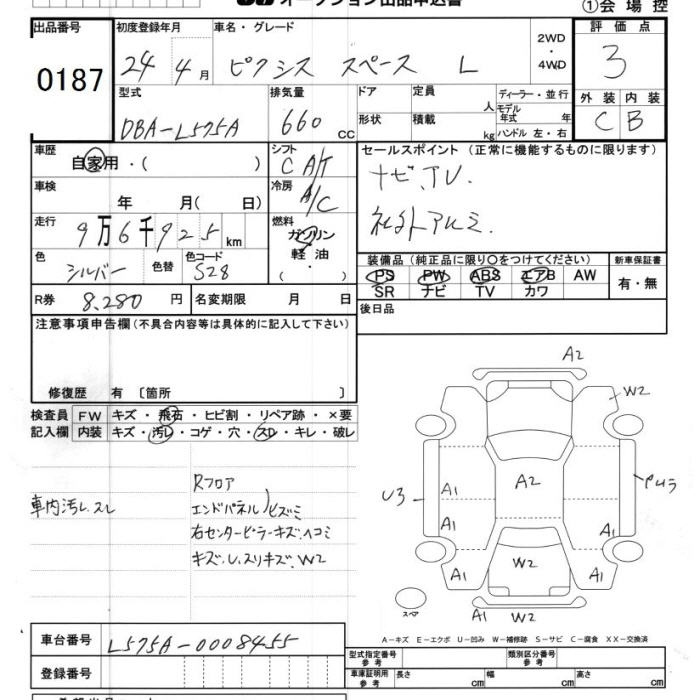 オークション出品申込書
①会場控
出品番号
0187
初度登録年月
24年4月
車名・グレード
ピクシス スペース L
2WD
・
4WD
評価点
3
型式
DBA-L575A
排気量
660cc
ドア
定員
人
形状
積載
kg
ディーラー・並行
モデル年式 年
ハンドル 左・右
外装
内装
C
B
車歴
自家用・( )
シフト
C A/T
セールスポイント (正常に機能するものに限ります)
ナビ、TV.
社外アルミ.
車検
年 月( 日)
冷房
A/C
走行
9万6千925km
燃料
ガソリン
軽油
・
色
シルバー
色替
色コード
S28
装備品 (純正品に限り○をつけてください)
新車保証書
PS PW ABS エアB AW
SR ナビ TV カワ
有・無
R券
8,280円
名変期限 月 日
後日品
注意事項申告欄 (不具合内容等は具体的に記入して下さい)
修復歴 有〔箇所 〕
検査員
記入欄
FW キズ・飛石・ヒビ割・リペア跡・×要
内装 キズ・汚レ・コゲ・穴・スレ・キレ・破レ
車内汚レ.スレ
Rフロア
エンドパネル)ヒズミ
右センターピラーキズ、ヘコミ
キズ、U、スリキズ、W2
A2
W2
A2
U3
A1
A1
A1
A1
W2
A1
A1
W2
スペア
A-キズ E-エクボ U-凹み W-補修跡 S-サビ C-腐食 XX-交換済
車台番号
L575A-0008455
登録番号
型式指定番号
参考
類別区分番号
参考
車庫証明用
参考
長さ cm
幅 cm
高さ cm